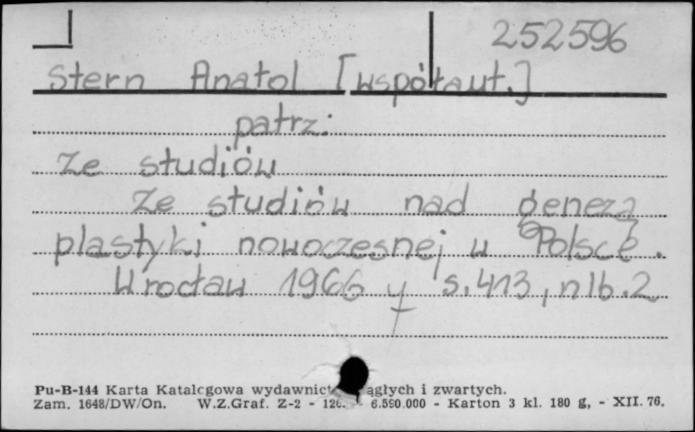 252596
Stern Anatol [współaut.]
patrz:
Ze studiów
Ze studiów nad genezą
plastyki nowoczesnej w Polsce.
Wrocław 1966 s. 413, nlb. 2
Pu-B-144 Karta Katalogowa ciągłych i zwartych.
Zam. 1648/DW/On. W.Z.Graf. Z-2 - 6.590.000 - Karton 3 kl. 180 g, - XII. 76.